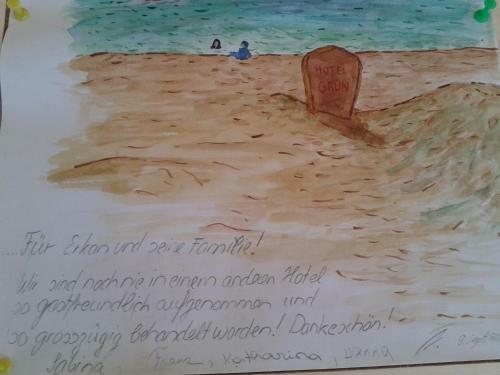 HOTEL
GRÜN
....Für Erkan und seine Familie!
Wir sind noch nie in einem anderen Hotel
so gastfreundlich aufgenommen und
so grosszügig behandelt worden! Dankeschön!
Sabina, Franz, Katharina,